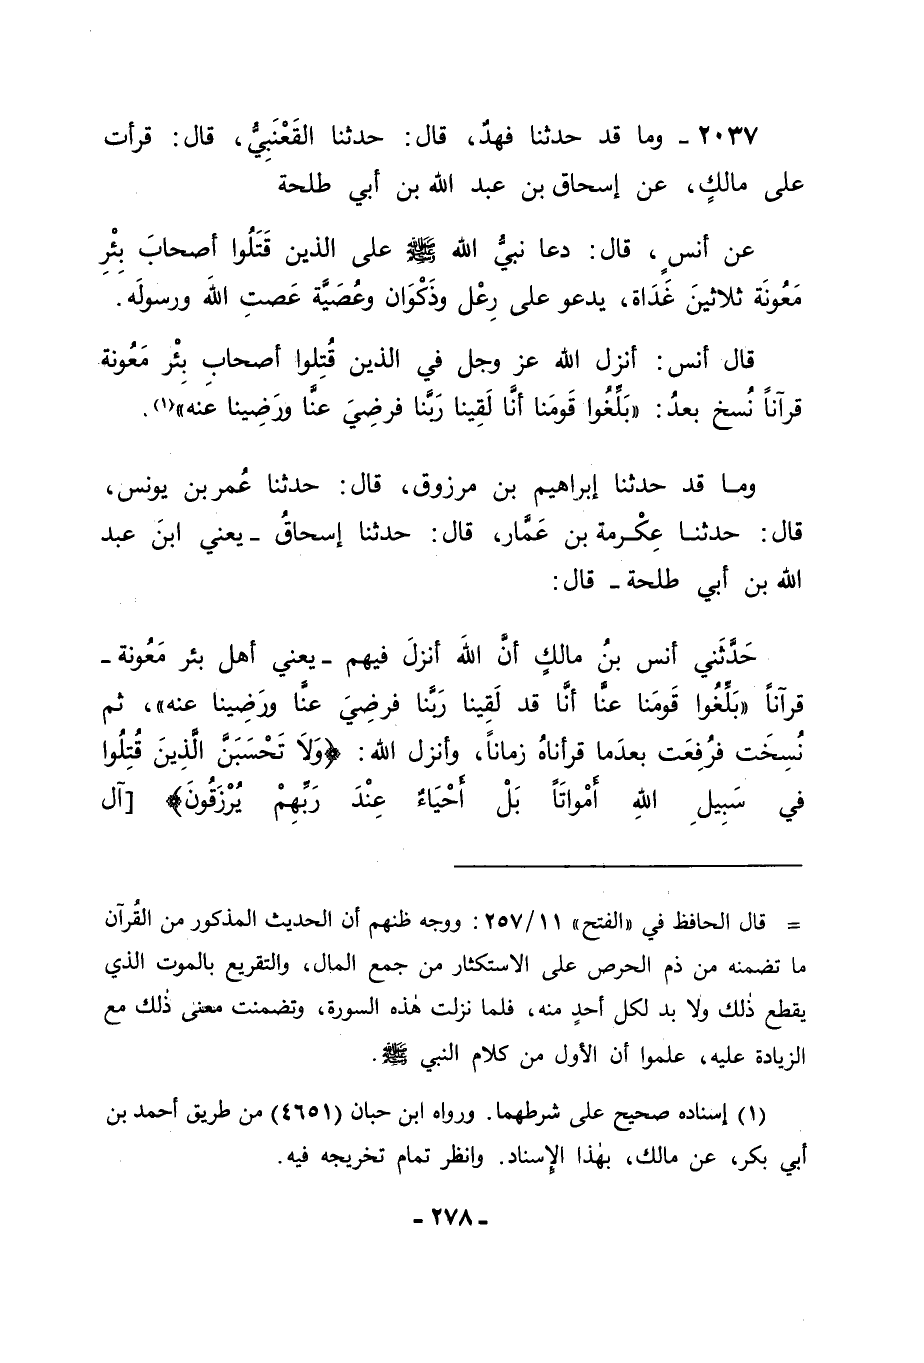 ٢٠٣٧ ـ وما قد حدثنا فهدٌ، قال: حدثنا القَعْنَبِيُّ، قال: قرأت
على مالكٍ، عن إسحاق بن عبد الله بن أبي طلحة
عن أنسٍ، قال: دعا نبيُّ الله ﷺ على الذين قَتَلُوا أصحابَ بِئْرِ
مَعُونَة ثلاثينَ غَدَاة، يدعو على رِعْل وذَكْوَان وعُصَيَّة عَصتِ اللهَ ورسولَه.
قال أنس: أنزل الله عز وجل في الذين قُتِلوا أصحابِ بِئْر مَعُونة
قرآناً نُسخ بعدُ: «بَلِّغُوا قَومَنا أنَّا لَقِينا رَبَّنا فرضِيَ عنَّا ورَضِينا عنه»(١).
ومـا قد حدثنا إبراهيم بن مرزوق، قال: حدثنا عُمر بن يونس،
قال: حدثنـا عِكْـرمة بن عَمَّار، قال: حدثنا إسحاقُ ـ يعني ابنَ عبد
الله بن أبي طلحة ـ قال:
حَدَّثَني أنس بنُ مالكٍ أنَّ اللهَ أنزلَ فيهم ـ يعني أهل بئر مَعُونة ـ
قرآناً «بَلِّغُوا قَومَنا عنَّا أنَّا قد لَقِينا رَبَّنا فرضِيَ عنَّا ورَضِينا عنه»، ثم
نُسِخَت فرُفِعَت بعدَما قرأناهُ زماناً، وأنزل الله: ﴿وَلَا تَحْسَبَنَّ الَّذِينَ قُتِلُوا
في سَبِيلِ اللهِ أَمْواتَاً بَلْ أَحْيَاءٌ عِنْدَ رَبِّهِمْ يُرْزَقُونَ﴾ [آل
= قال الحافظ في «الفتح» ٢٥٧/١١: ووجه ظنهم أن الحديث المذكور من القُرآن
ما تضمنه من ذم الحرص على الاستكثار من جمع المال، والتقريع بالموت الذي
يقطع ذٰلك ولا بد لكل أحدٍ منه، فلما نزلت هٰذه السورة، وتضمنت معنى ذٰلك مع
الزيادة عليه، علموا أن الأول من كلام النبي ﷺ.
(١) إسناده صحيح على شرطهما. ورواه ابن حبان (٤٦٥١) من طريق أحمد بن
أبي بكر، عن مالك، بهٰذا الإسناد. وانظر تمام تخريجه فيه.
ـ ٢٧٨ ـ